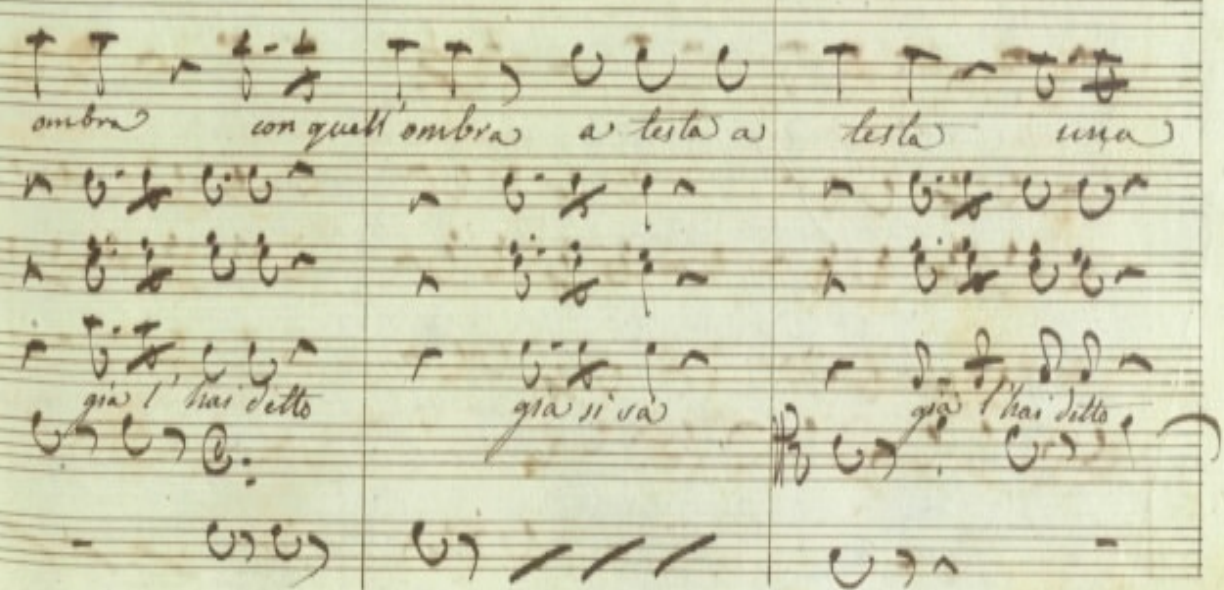 ombra con quell' ombra a testa a testa una
già l' hai detto già si sà già l' hai detto